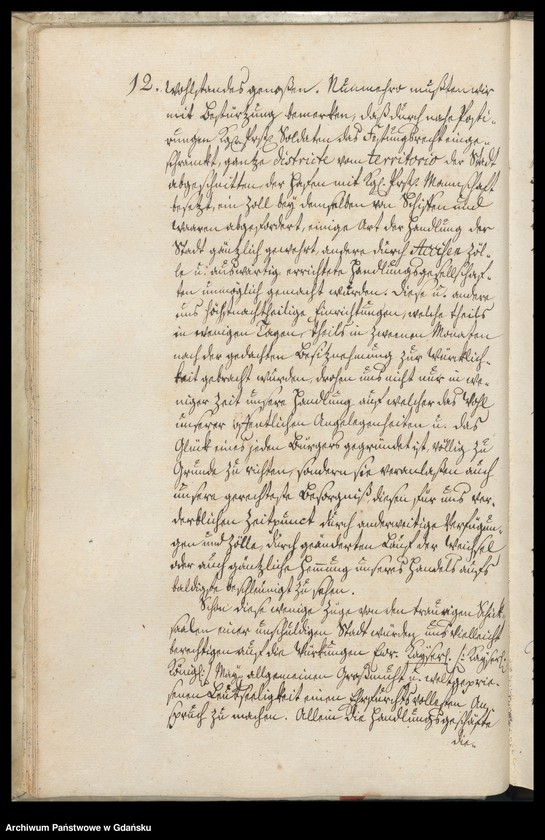 12. Wohlstandes genoßen. Nunmehro mußten wir
mit Bestürzung bemerken, daß durch nahe Posti-
rungen Kgl. Prß. Soldaten das Festungsrecht einge-
schränkt, ganze districte vom territorio der Stadt
abgeschnitten, der Hafen mit Kgl. Prß. Mannschaft
besetzt, ein Zoll bey demselben von Schiffen und
Waaren abgefordert, einige Art der Handlung der
Stadt gäntzlich gewehrt, andere durch Accisen Zöl-
le u. auswärtig errichtete Handlungsgesellschaf-
ten unmöglich gemacht wurden. Diese u. andere
uns höchstnachtheilige Einrichtungen, welche theils
in wenigen Tagen, theils in zweenen Monaten
nach der gedachten Besitznehmung zur Würcklich-
keit gebracht wurden, drohen uns nicht nur in we-
niger Zeit unsere Handlung auf welcher das Wohl
unserer öffentlichen Angelegenheiten u. das
Glück eines jeden Bürgers gegründet ist, völlig zu
Grunde zu richten, sondern sie veranlaßten auch
unsere gerechteste Besorgniß diesen für uns ver-
derblichen Zeitpunct durch anderweitige Verfügun-
gen und Zölle, durch geänderten Lauf der Weichsel
oder auch gäntzliche Hemmung unseres Handels aufs
baldigste beschleunigt zu sehen.
Schon diese wenige Züge von den traurigen Schick-
saalen einer unschuldigen Stadt würden uns vielleicht
berechtigen auf die Würkungen Ewr. Kayserl. /: Kayserl.
Königl:/ May. allgemeinen Großmuth u. weltgeprie-
senen Leutseeligkeit einen Ehrfurchtsvollesten An-
spruch zu machen. Allein die Handlungsgeschäfte
die-
Archiwum Państwowe w Gdańsku